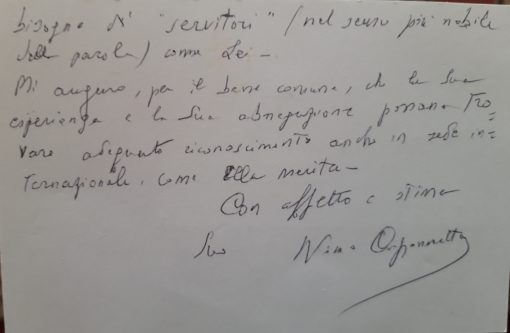 bisogno di "servitori" (nel senso più nobile
della parola) come Lei -
Mi auguro, per il bene comune, che la Sua
esperienza e la Sua abnegazione possano tro=
vare adeguato riconoscimento anche in sede in=
ternazionale, come Ella merita -
Con affetto e stima
Suo